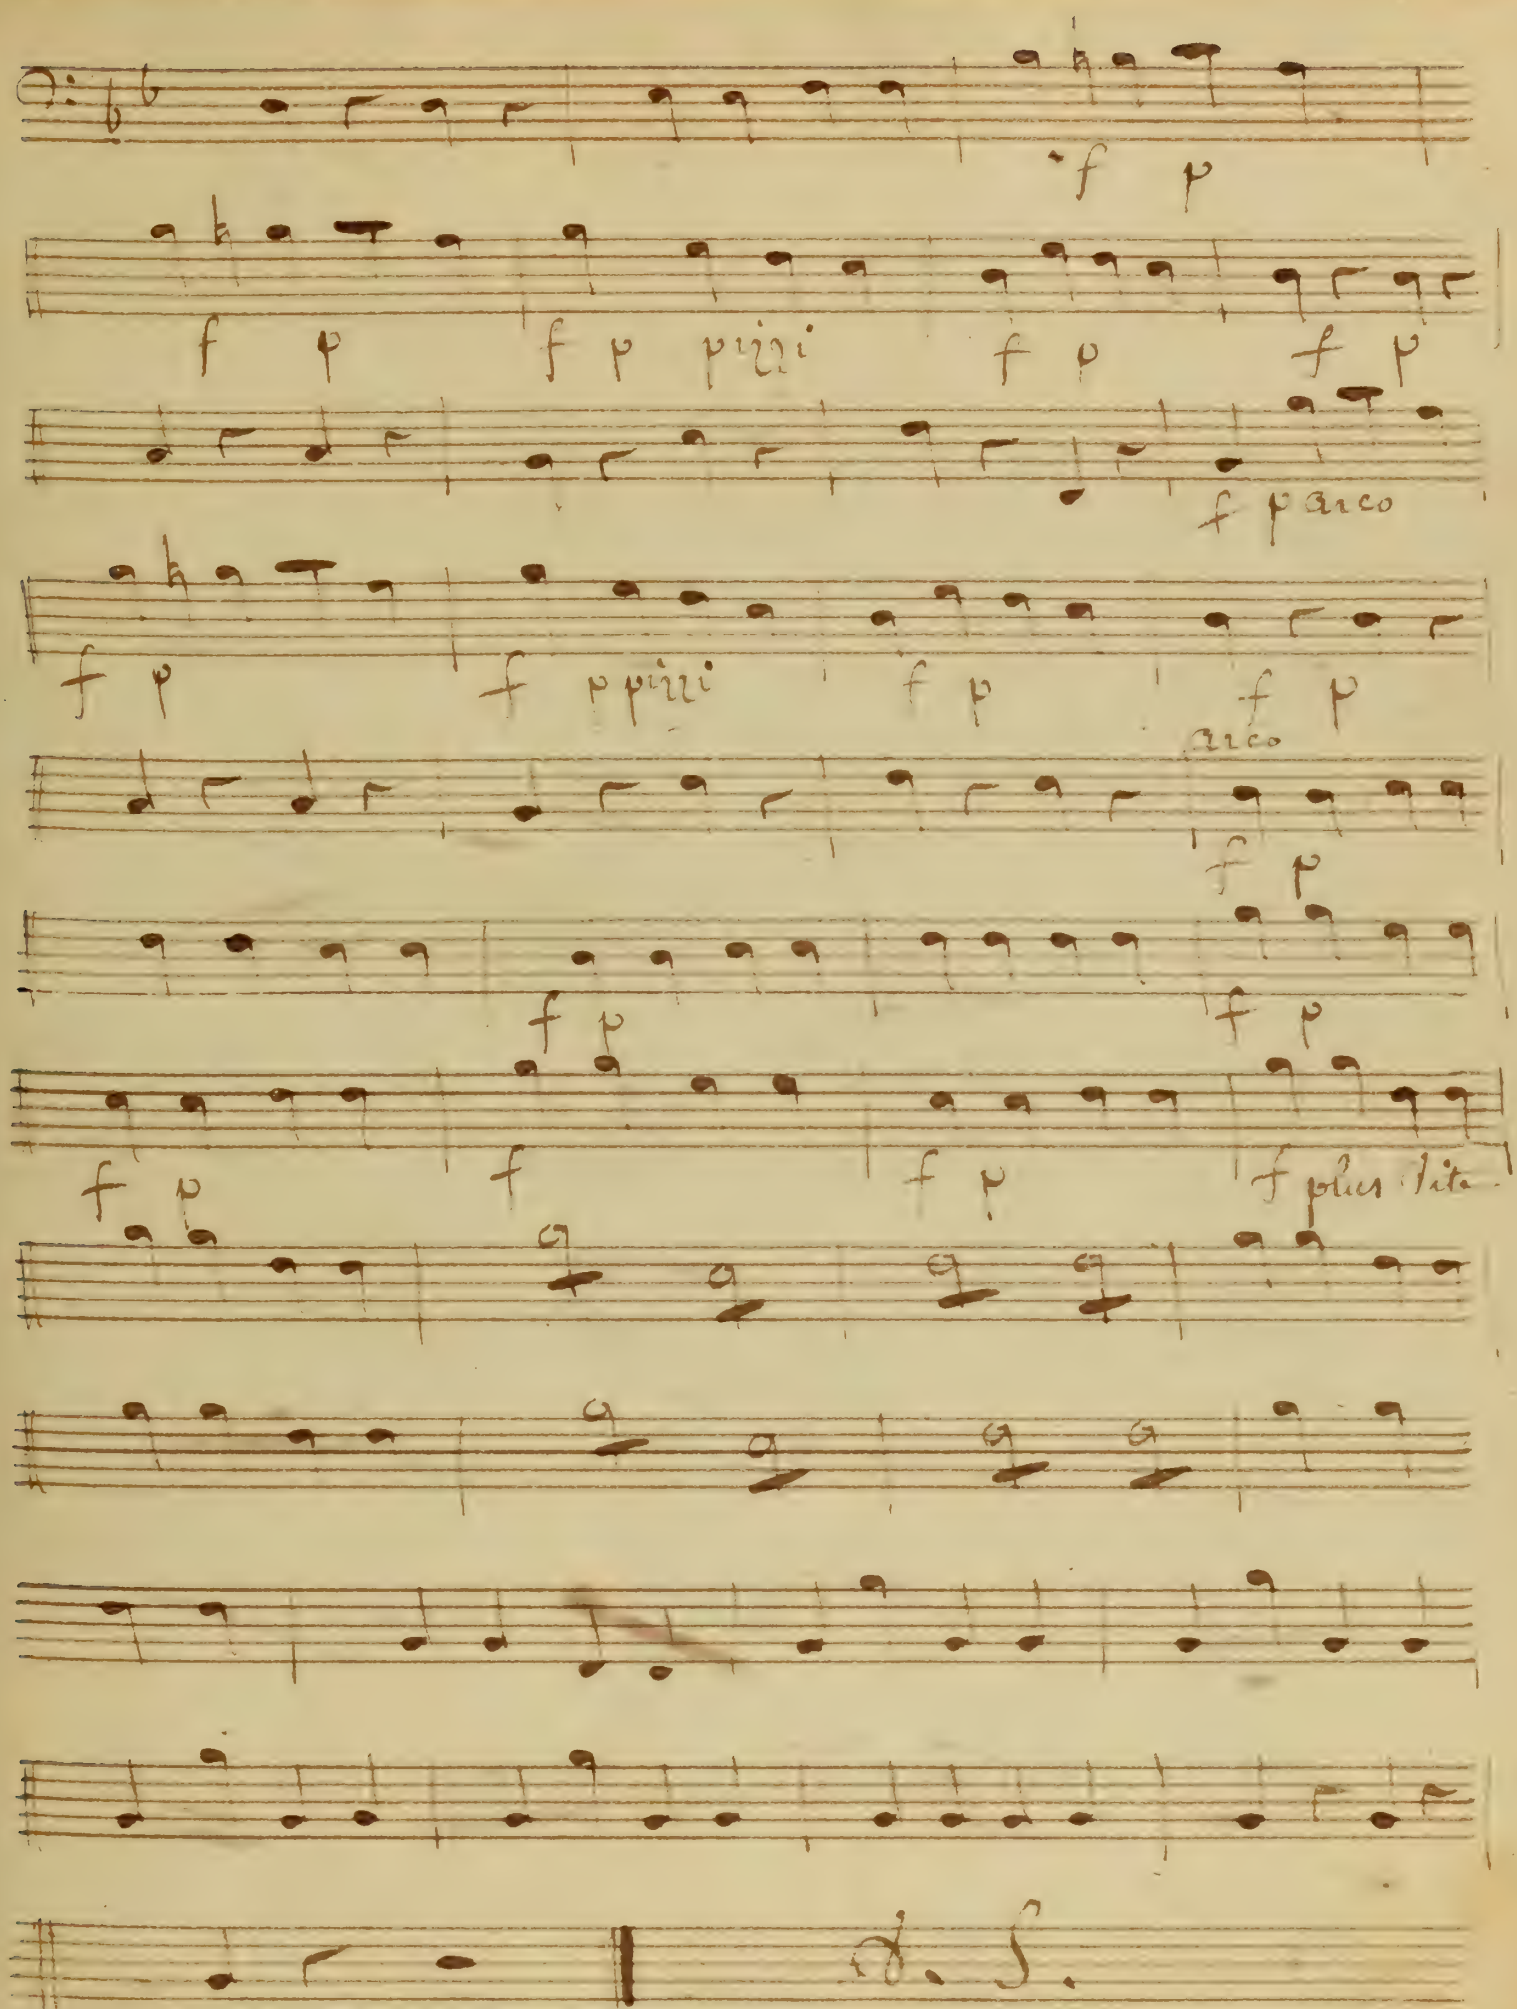 f p
f p f p pizzi f p f p
f p arco
f p f p pizzi f p f p
arco
f p
f p f p
f p f f p f plus vite
D. S.